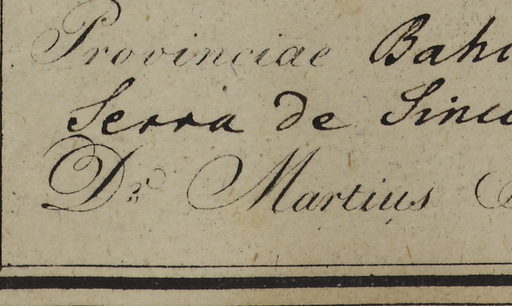 Provinciae Bahi
Serra de Sinco
Dr. Martius